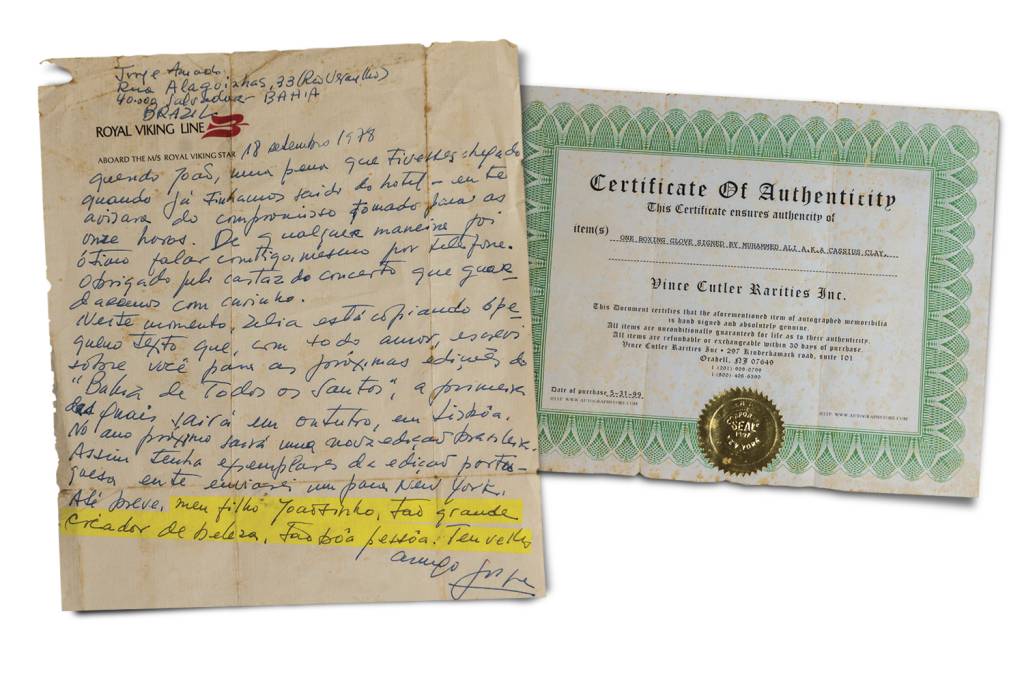 Jorge Amado
Rua Alagoinhas, 33 (Rio Vermelho)
40.000 Salvador BAHIA
BRAZIL
ROYAL VIKING LINE
ABOARD THE M/S ROYAL VIKING STAR 18 setembro 1978
querido João, uma pena que tivesses chegado
quando já tinhamos saido do hotel – eu te
avisara do compromisso tomado para as
onze horas. De qualquer maneira foi
ótimo falar contigo, mesmo por telefone.
Obrigado pelo cartaz do concerto que guar-
daremos com carinho.
Neste momento, Zelia está copiando o pe-
queno texto que, com todo amor, escrevi
sobre você para as próximas edições do
"Bahia de Todos os Santos", a primeira
das quais sairá em outubro, em Lisbôa.
No ano próximo sairá uma nova edição brasileira.
Assim tenha exemplares da edição portu-
guesa eu te enviarei um para New York.
Até breve, meu filho Joãozinho, tão grande
creador de beleza, tão bôa pessôa. Teu velho
amigo Jorge
Certificate Of Authenticity
This Certificate ensures authencity of
item(s) ONE BOXING GLOVE SIGNED BY MUHAMMED ALI A.K.A CASSIUS CLAY.
Vince Cutler Rarities Inc.
This Document certifies that the aforementioned item of autographed memoribilia
is hand signed and absolutely genuine.
All items are unconditionally guaranteed for life as to their authenticity.
All items are refundable or exchangeable within 30 days of purchase.
Vince Cutler Rarities Inc • 297 Kinderkamack road, suite 101
Oradell, NJ 07649
Date of purchase 5-21-99
HTTP: WWW.AUTOGRAPHSTORE.COM
HTTP: WWW.AUTOGRAPHSTORE.COM
SEAL
NEW YORK